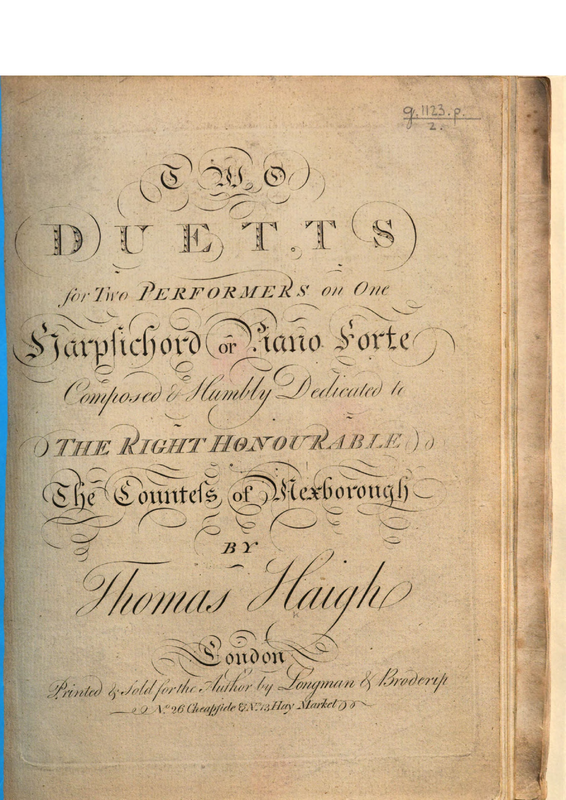 g.1123.p.
2.
TWO
DUETTS
for Two PERFORMERS on One
Harpsichord or Piano Forte
Composed & Humbly Dedicated to
THE RIGHT HONOURABLE
The Counteſs of Mexborough
BY
Thomas Haigh
London
Printed & Sold for the Author by Longman & Broderip
No. 26 Cheapside & No. 13 Hay Market